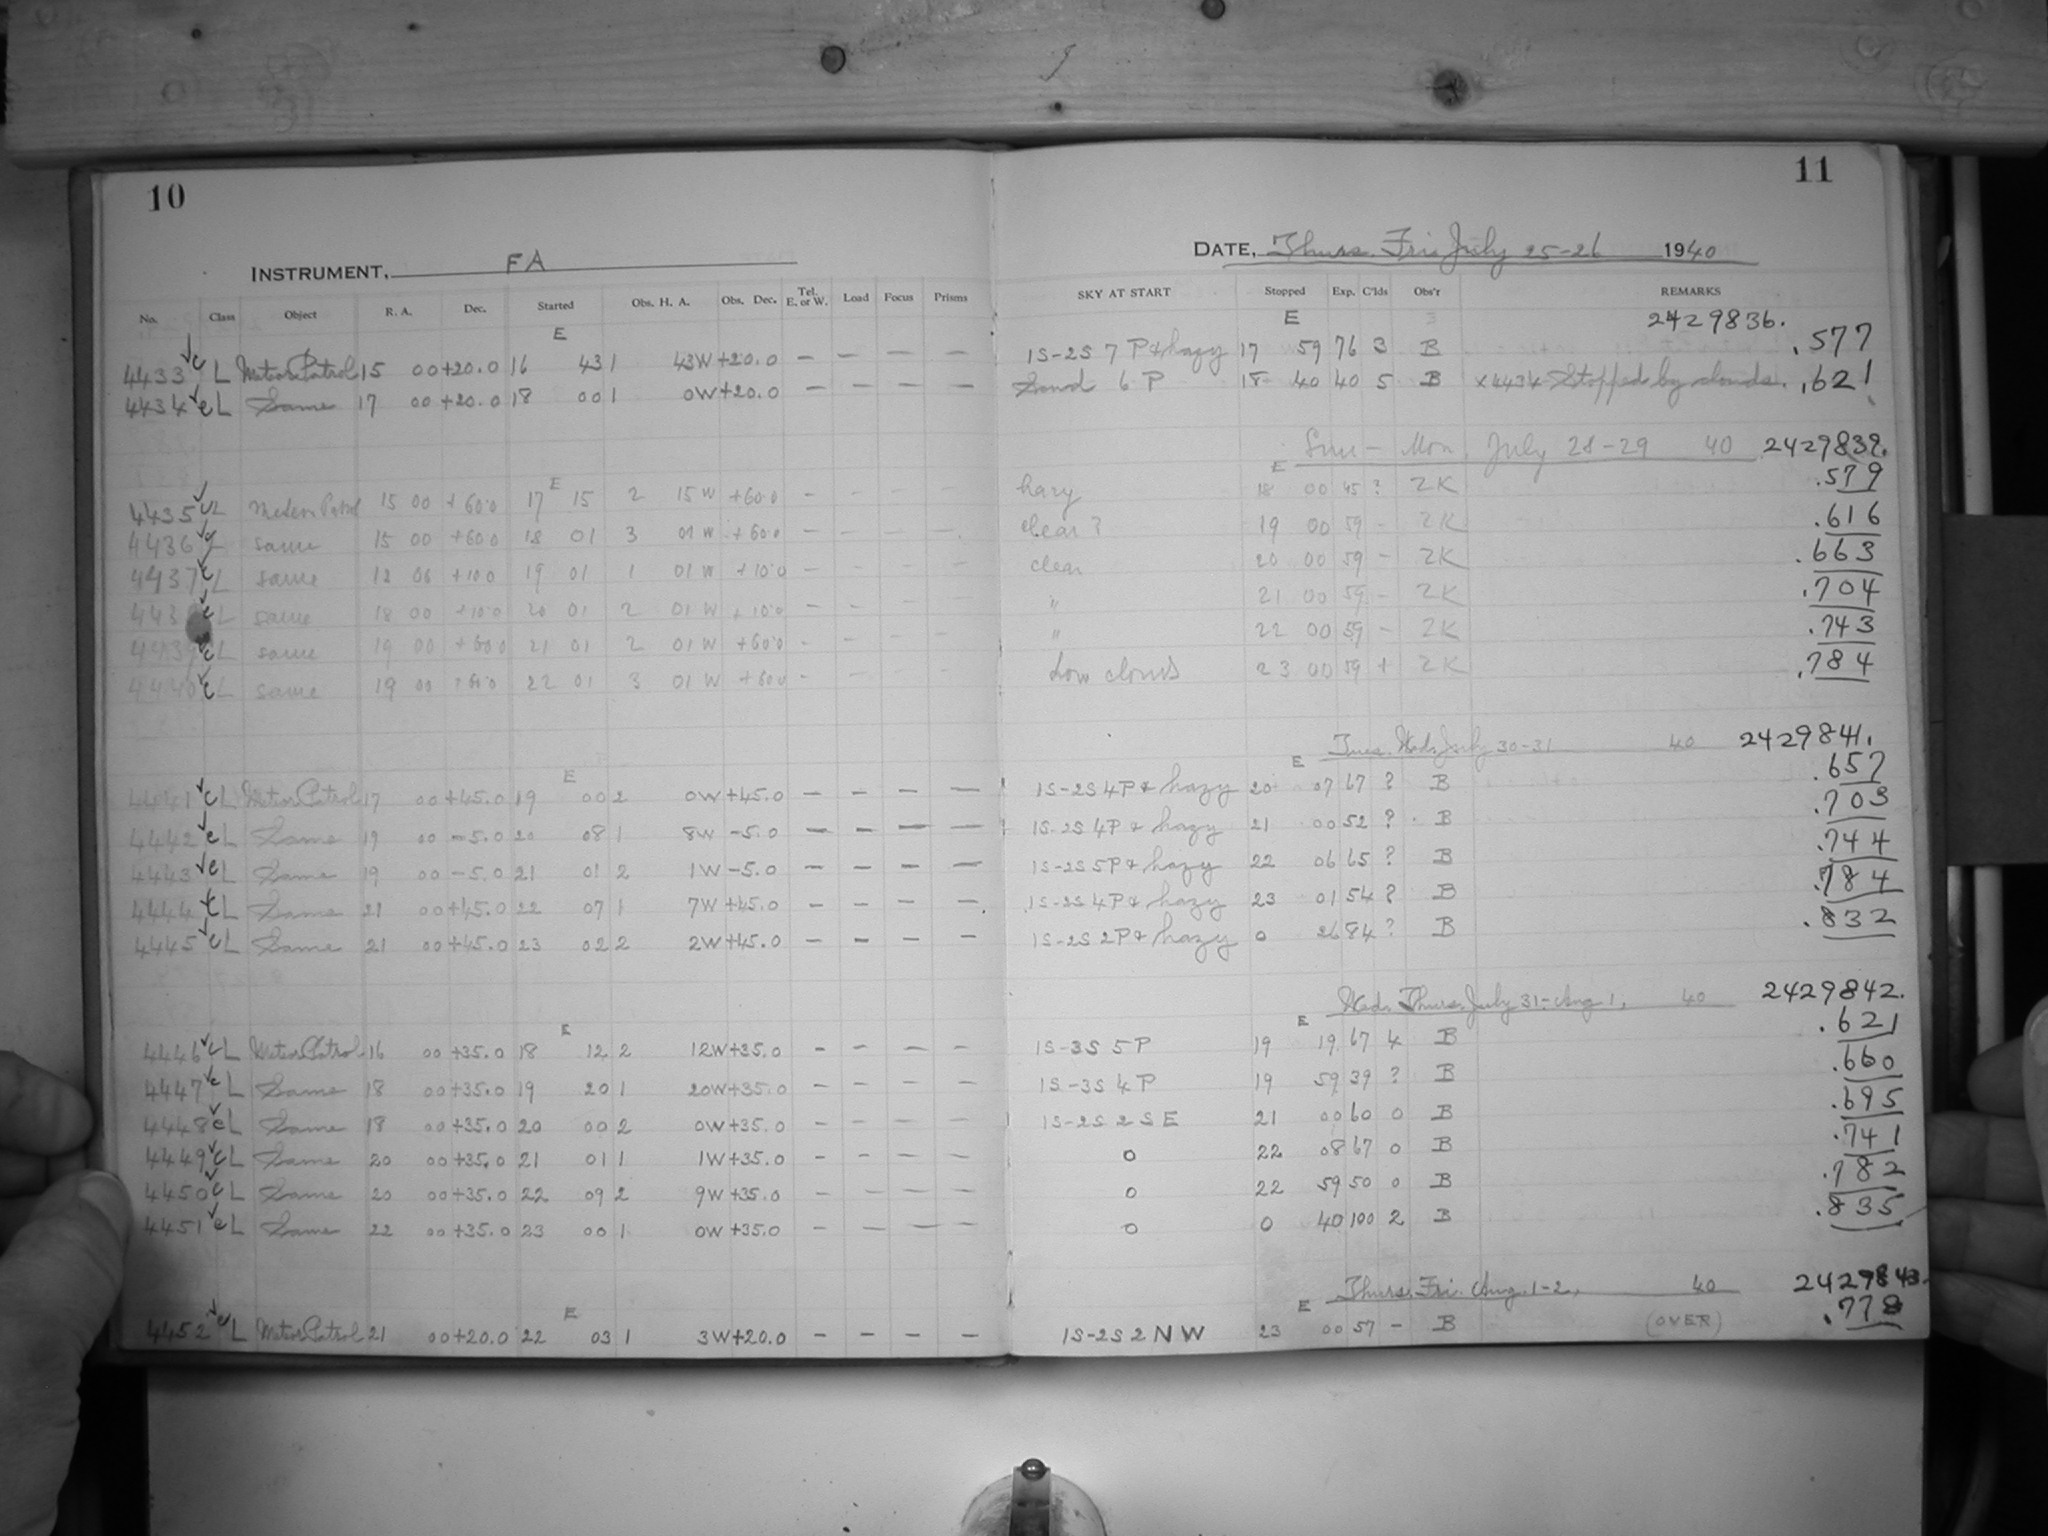 10
11
INSTRUMENT, FA
DATE, Thurs. Fri. July 25-26 1940
No. Class Object R. A. Dec. Started Obs. H. A. Obs. Dec. Tel. E. or W. Load Focus Prisms SKY AT START Stopped Exp. C'lds Obs'r REMARKS
E E 2429836.
4433 c L Meteor Patrol 15 00 +20.0 16 43 1 43W +20.0 - - - - 1S-2S 7 P & hazy 17 59 76 3 B .577
4434 c L Same 17 00 +20.0 18 00 1 0W +20.0 - - - - 6 P 18 40 40 5 B x4434 Stopped by clouds. .621
Sun - Mon. July 28-29 40 2429839.
E E
4435 c L Meteor Patrol 15 00 +60.0 17 15 2 15W +60.0 - - - - hazy 18 00 45 ? ZK .579
4436 L same 15 00 +60.0 18 01 3 01W +60.0 - - - - clear? 19 00 59 - ZK .616
4437 c L same +10.0 19 01 1 01W +10.0 - - - - clear 20 00 59 - ZK .663
443 c L same 18 00 +10.0 20 01 2 01W +10.0 - - - - " 21 00 59 - ZK .704
4439 c L same 19 00 +60.0 21 01 2 01W +60.0 - - - - " 22 00 59 - ZK .743
4440 c L same 19 00 +60.0 22 01 3 01W +60.0 - - - - Low clouds 23 00 59 + ZK .784
Tues. Wed. July 30-31 40 2429841.
E E
4441 c L Meteor Patrol 17 00 +45.0 19 00 2 0W +45.0 - - - - 1S-2S 4P & hazy 20 07 67 ? B .657
4442 c L Same 19 00 -5.0 20 08 1 8W -5.0 - - - - 1S-2S 4P & hazy 21 00 52 ? B .703
4443 c L Same 19 00 -5.0 21 01 2 1W -5.0 - - - - 1S-2S 5P & hazy 22 06 65 ? B .744
4444 c L Same 21 00 +45.0 22 07 1 7W +45.0 - - - - 1S-2S 4P & hazy 23 01 54 ? B .784
4445 c L Same 21 00 +45.0 23 02 2 2W +45.0 - - - - 1S-2S 2P & hazy 0 26 84 ? B .832
Wed. Thurs. July 31-Aug 1, 40 2429842.
E E
4446 c L Meteor Patrol 16 00 +35.0 18 12 2 12W +35.0 - - - - 1S-3S 5 P 19 19 67 4 B .621
4447 c L Same 18 00 +35.0 19 20 1 20W +35.0 - - - - 1S-3S 4 P 19 59 39 ? B .660
4448 c L Same 18 00 +35.0 20 00 2 0W +35.0 - - - - 1S-2S 2 S E 21 00 60 0 B .695
4449 c L Same 20 00 +35.0 21 01 1 1W +35.0 - - - - 0 22 08 67 0 B .741
4450 c L Same 20 00 +35.0 22 09 2 9W +35.0 - - - - 0 22 59 50 0 B .782
4451 c L Same 22 00 +35.0 23 00 1 0W +35.0 - - - - 0 0 40 100 2 B .835
Thurs. Fri. Aug. 1-2, 40 2429843.
E E
4452 c L Meteor Patrol 21 00 +20.0 22 03 1 3W +20.0 - - - - 1S-2S 2 N W 23 00 57 - B (OVER) .778